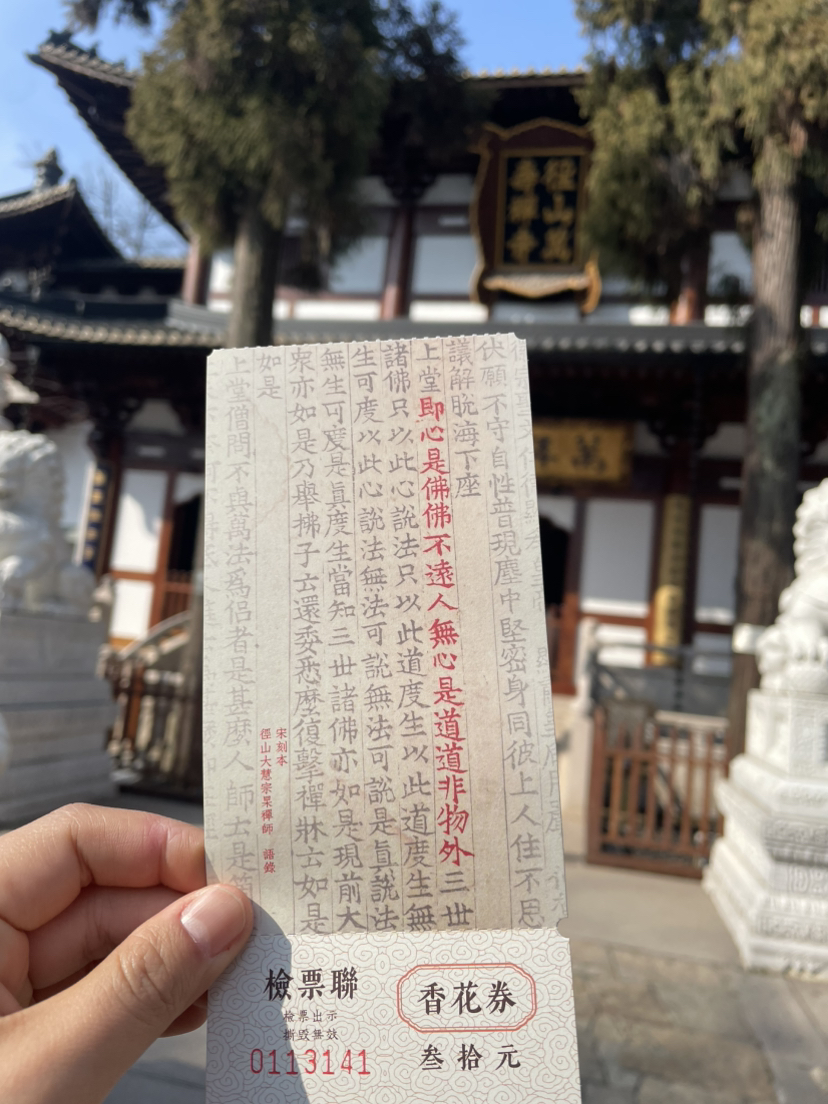 徑山萬
壽禪寺
伏願不守自性普現塵中堅密身同彼上人住不思
議解脫海下座
上堂即心是佛佛不遠人無心是道道非物外三世
諸佛只以此心說法只以此道度生以此道度生無
生可度以此心說法無法可說無法可說是眞說法
無生可度是眞度生當知三世諸佛亦如是現前大
衆亦如是乃舉拂子云還委悉麼復擊禪牀云如是
如是
上堂僧問不與萬法爲侶者是甚麼人師云是
宋刻本
徑山大慧宗杲禪師 語錄
檢票聯
檢票出示
撕毀無效
0113141
香花券
叁拾元